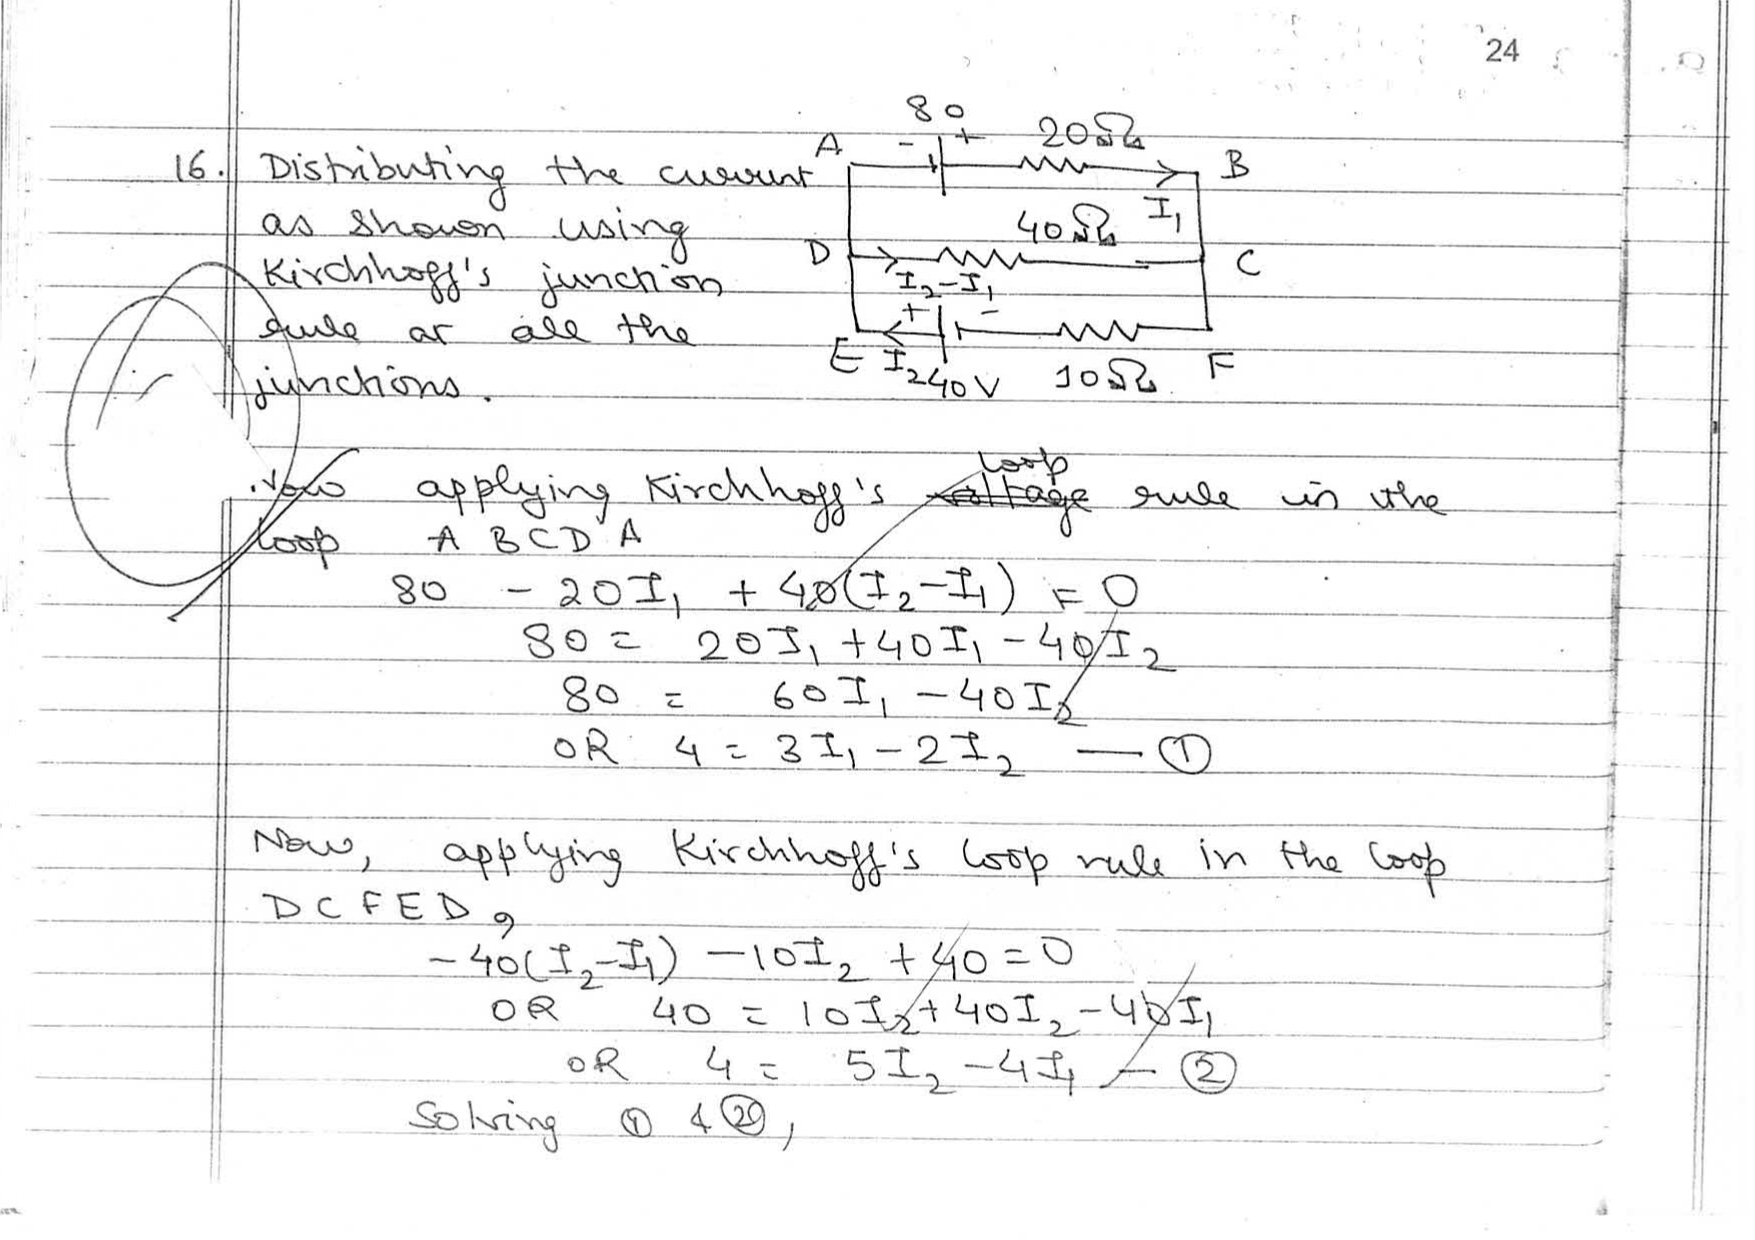 24
80
- +
20Ω
A
B
16. Distributing the current
I₁
as shown using
40Ω
D
C
Kirchhoff's junction
I₂-I₁
+ -
rule at all the
E I₂ 40V 10Ω F
junctions.
loop
Now applying Kirchhoff's voltage rule in the
loop A B C D A
80 - 20I₁ + 40(I₂-I₁) = 0
80 = 20I₁ + 40I₁ - 40I₂
80 = 60I₁ - 40I₂
OR 4 = 3I₁ - 2I₂ — ①
Now, applying Kirchhoff's loop rule in the loop
DCFED,
-40(I₂-I₁) - 10I₂ + 40 = 0
OR 40 = 10I₂ + 40I₂ - 40I₁
OR 4 = 5I₂ - 4I₁ — ②
Solving ① & ②,